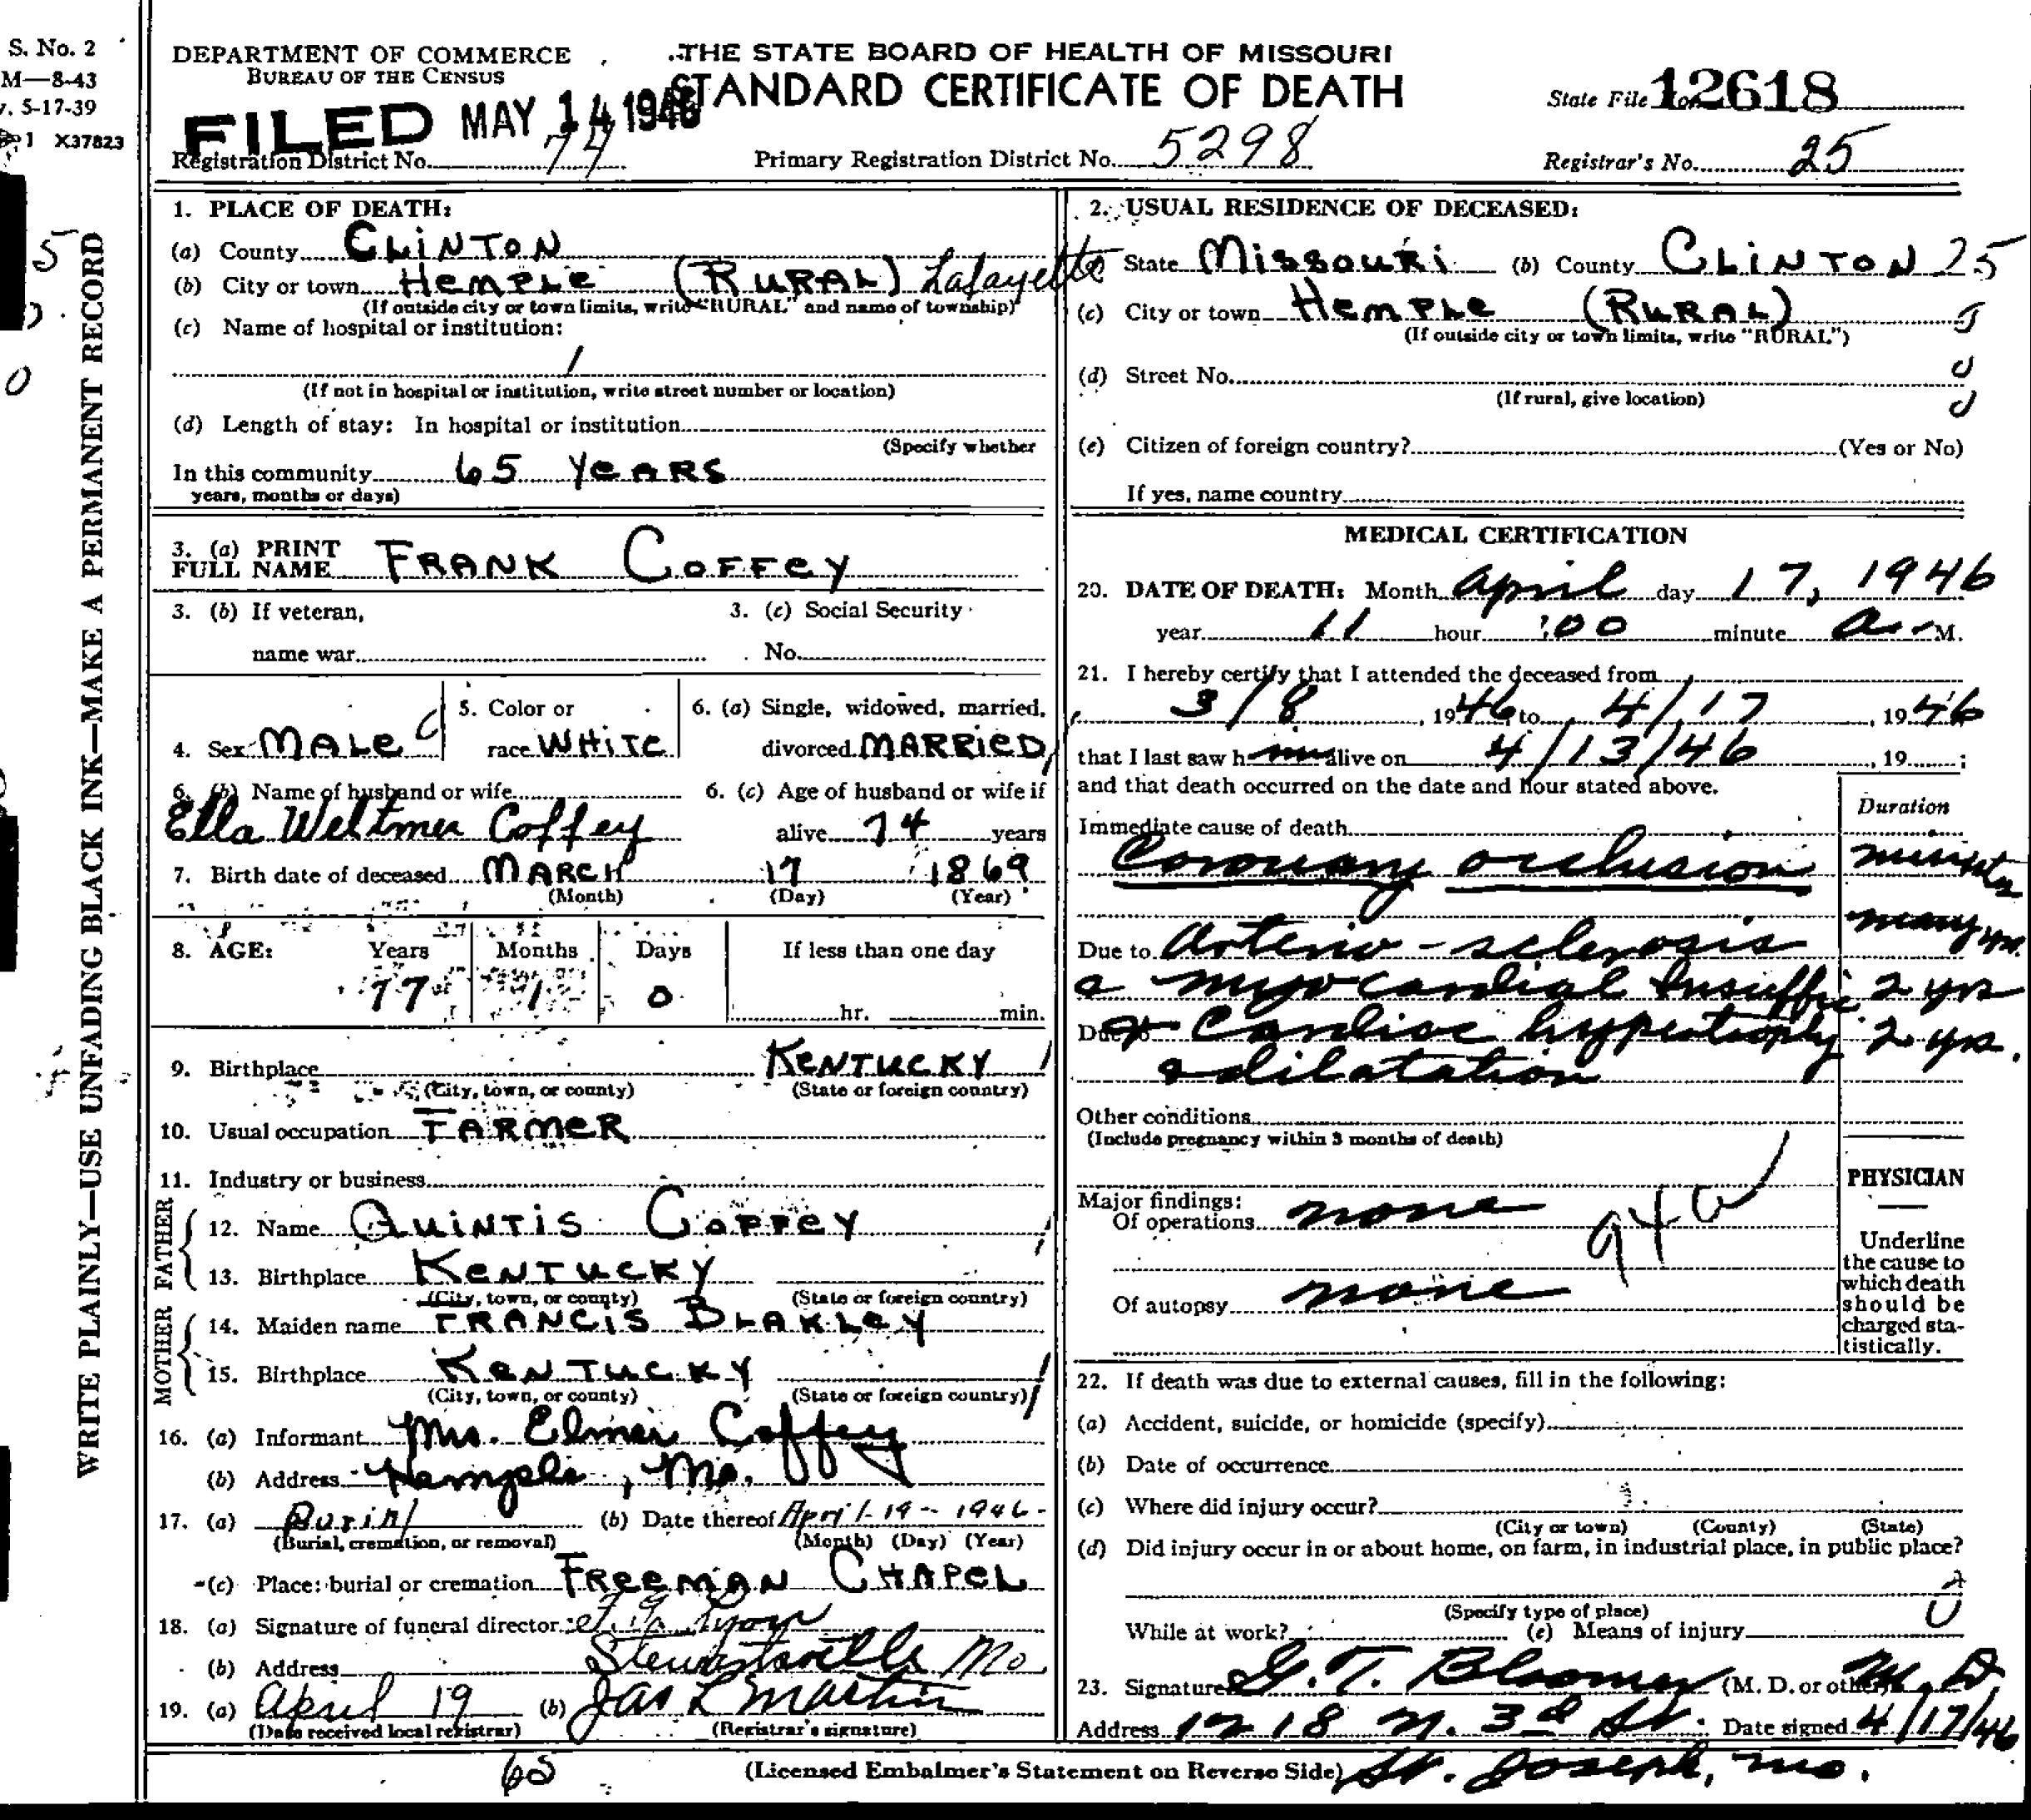 S. No. 2
M—8-43
v. 5-17-39
1 X37823
WRITE PLAINLY—USE UNFADING BLACK INK—MAKE A PERMANENT RECORD
DEPARTMENT OF COMMERCE
BUREAU OF THE CENSUS
THE STATE BOARD OF HEALTH OF MISSOURI
STANDARD CERTIFICATE OF DEATH
FILED MAY 14 1946
State File No. 12618
Registration District No. 74
Primary Registration District No. 5298
Registrar's No. 25
1. PLACE OF DEATH:
(a) County CLINTON
(b) City or town HEMPLE (RURAL) Lafayette
(If outside city or town limits, write "RURAL" and name of township)
(c) Name of hospital or institution:
(If not in hospital or institution, write street number or location)
(d) Length of stay: In hospital or institution
(Specify whether
In this community 65 YEARS
years, months or days)
3. (a) PRINT
FULL NAME FRANK COFFEY
3. (b) If veteran,
name war
3. (c) Social Security
No.
4. Sex MALE
5. Color or
race WHITE
6. (a) Single, widowed, married,
divorced MARRIED
6. (b) Name of husband or wife
Ella Weltmer Coffey
6. (c) Age of husband or wife if
alive 74 years
7. Birth date of deceased MARCH 17 1869
(Month) (Day) (Year)
8. AGE: Years Months Days If less than one day
77 1 0 hr. min.
9. Birthplace KENTUCKY
(City, town, or county) (State or foreign country)
10. Usual occupation FARMER
11. Industry or business
FATHER
12. Name QUINTIS COFFEY
13. Birthplace KENTUCKY
(City, town, or county) (State or foreign country)
MOTHER
14. Maiden name FRANCIS BLAKLEY
15. Birthplace KENTUCKY
(City, town, or county) (State or foreign country)
16. (a) Informant Mrs. Elmer Coffey
(b) Address Hemple, Mo.
17. (a) Burial (b) Date thereof April-19-1946-
(Burial, cremation, or removal) (Month) (Day) (Year)
(c) Place: burial or cremation FREEMAN CHAPEL
18. (a) Signature of funeral director Lyon
(b) Address Stewartsville Mo
19. (a) April 19 (b) Jas L Martin
(Date received local registrar) (Registrar's signature)
2. USUAL RESIDENCE OF DECEASED:
State MISSOURI (b) County CLINTON 25
(c) City or town HEMPLE (RURAL)
(If outside city or town limits, write "RURAL")
(d) Street No.
(If rural, give location)
(e) Citizen of foreign country? (Yes or No)
If yes, name country
MEDICAL CERTIFICATION
20. DATE OF DEATH: Month April day 17, 1946
year 11 hour :00 minute a. M.
21. I hereby certify that I attended the deceased from
3/8, 1946 to 4/17, 1946
that I last saw him alive on 4/13/46, 19 ;
and that death occurred on the date and hour stated above.
Duration
Immediate cause of death
Coronary occlusion minutes
Due to Arterio-sclerosis many yrs.
& myocardial Insuffic 2 yrs
Due to & Cardiac hypertrophy 2 yrs.
& dilatation
Other conditions
(Include pregnancy within 3 months of death)
Major findings:
Of operations none
94a
Of autopsy none
PHYSICIAN
Underline
the cause to
which death
should be
charged sta-
tistically.
22. If death was due to external causes, fill in the following:
(a) Accident, suicide, or homicide (specify)
(b) Date of occurrence
(c) Where did injury occur?
(City or town) (County) (State)
(d) Did injury occur in or about home, on farm, in industrial place, in public place?
(Specify type of place)
While at work? (e) Means of injury
23. Signature G. T. Bloomer (M. D. or other) M.D.
Address 1218 N. 3d St. Date signed 4/17/46
St. Joseph, Mo.
65
(Licensed Embalmer's Statement on Reverse Side)